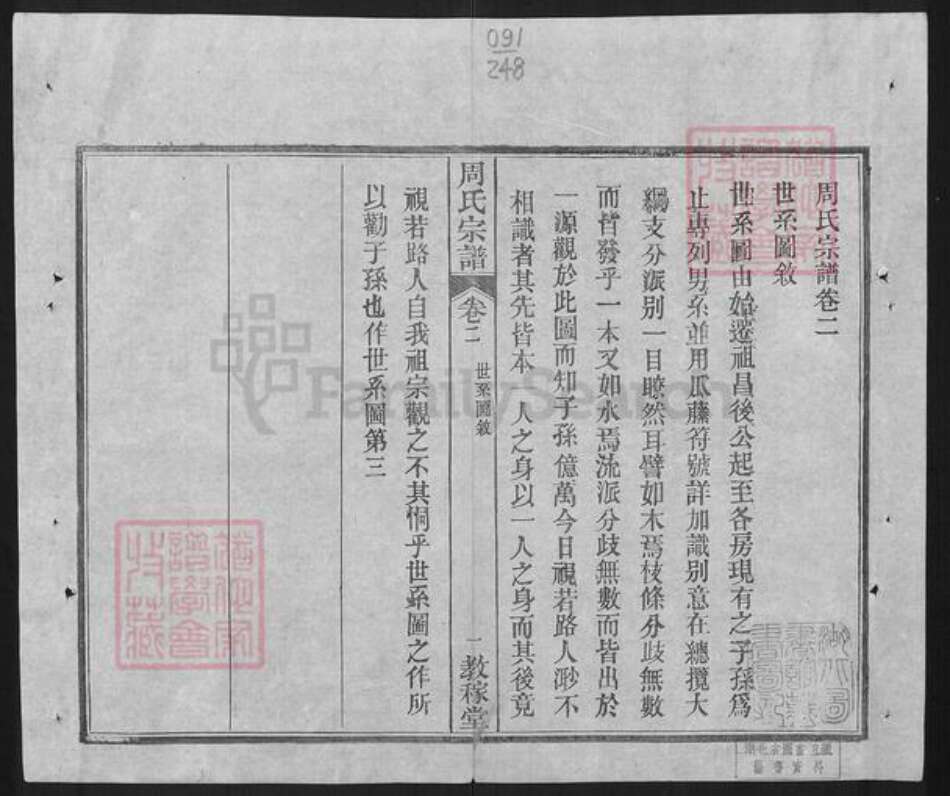 091
248
周氏宗譜卷二
世系圖敘
世系圖由始遷祖昌後公起至各房現有之子孫爲
止專列男系並用瓜藤符號詳加識別意在總攬大
綱支分派別一目瞭然耳譬如木焉枝條分歧無數
而皆發乎一本又如水焉流派分歧無數而皆出於
一源觀於此圖而知子孫億萬今日視若路人渺不
相識者其先皆本 人之身以一人之身而其後竟
周氏宗譜
卷二
世系圖敘
一
教稼堂
視若路人自我祖宗觀之不其恫乎世系圖之作所
以勸子孫也作世系圖第三
FamilySearch